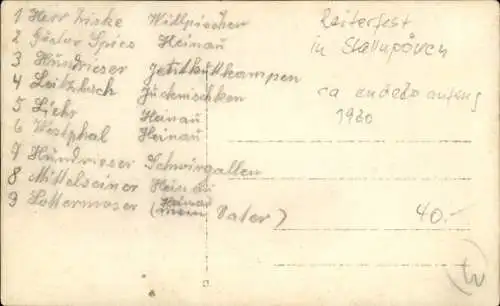 1 Herr Ziske Willpischen
2 Gustav Spies Heinau
3 Hundrieser Jentkutkampen
4 Leitzbach Jucknischken
5 Liehr Heinau
6 Westphal Heinau
7 Hundrieser Schwirgallen
8 Mittelseiner Heinau
9 Lottermoser Heinau
(mein Vater)
Reiterfest
in Stallupönen
ca
1930
40.-